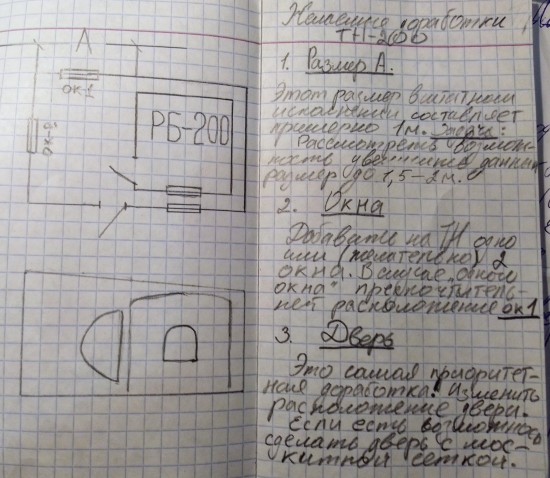 А
ок-1
ок-2
РБ-200
Желаемые доработки
ТН-200
1. Размер А.
Этот размер в штатном
исполнении составляет
примерно 1м. Задача:
Рассмотреть возмож-
ность увеличить данный
размер до 1,5-2м.
2. Окна
Добавить на ТН одно
или (желательно) 2
окна. В случае "одного
окна" предпочтитель-
нее расположение ок1
3. Дверь
Это самая приоритет-
ная доработка. Изменить
расположение двери.
Если есть возможность
сделать дверь с мос-
китной сеткой.